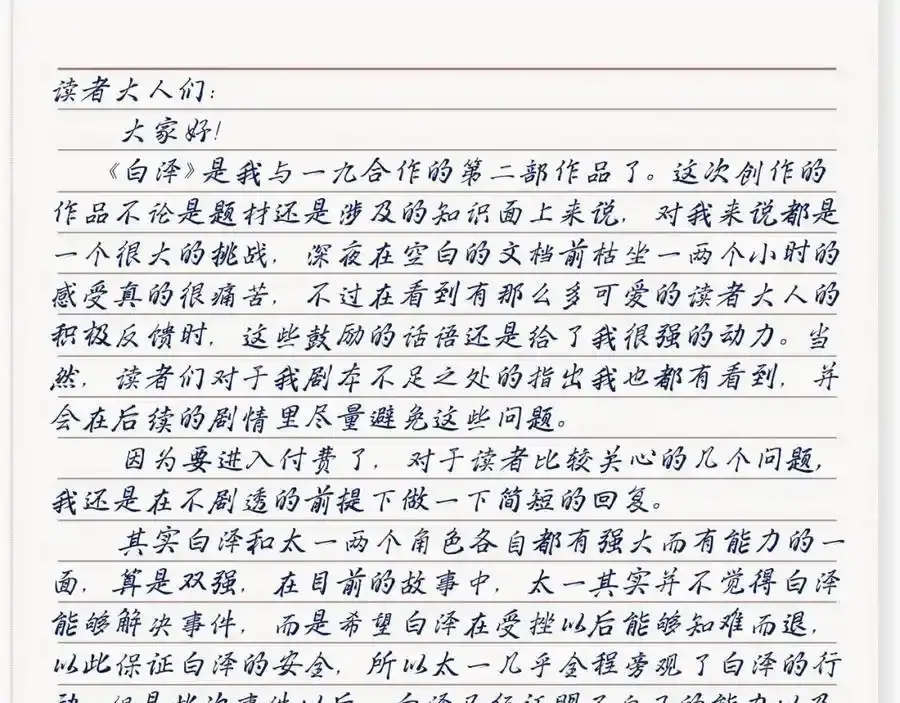 读者大人们：
大家好！
《白泽》是我与一九合作的第二部作品了。这次创作的
作品不论是题材还是涉及的知识面上来说，对我来说都是
一个很大的挑战，深夜在空白的文档前枯坐一两个小时的
感受真的很痛苦，不过在看到有那么多可爱的读者大人的
积极反馈时，这些鼓励的话语还是给了我很强的动力。当
然，读者们对于我剧本不足之处的指出我也都有看到，并
会在后续的剧情里尽量避免这些问题。
因为要进入付费了，对于读者比较关心的几个问题，
我还是在不剧透的前提下做一下简短的回复。
其实白泽和太一两个角色各自都有强大而有能力的一
面，算是双强，在目前的故事中，太一其实并不觉得白泽
能够解决事件，而是希望白泽在受挫以后能够知难而退，
以此保证白泽的安全，所以太一几乎全程旁观了白泽的行
动，但是此次事件以后，白泽已经证明了自己的能力以及